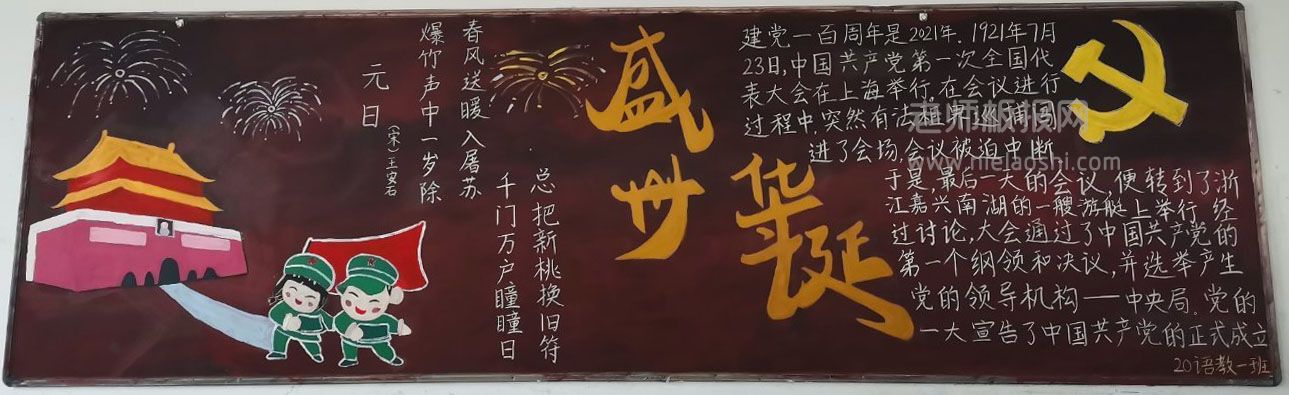 元日
(宋)王安石
爆竹声中一岁除
春风送暖入屠苏
千门万户瞳瞳日
总把新桃换旧符
盛世
华诞
建党一百周年是2021年.1921年7月
23日,中国共产党第一次全国代
表大会在上海举行.在会议进行
过程中,突然有法租界巡捕闯了
进了会场,会议被迫中断
于是,最后一大的会议,便转到了浙
江嘉兴南湖的一艘游艇上举行.经
过讨论,大会通过了中国共产党的
第一个纲领和决议,并选举产生
党的领导机构——中央局.党的
一大宣告了中国共产党的正式成立
20语教一班
老师板报网
www.melaoshi.com